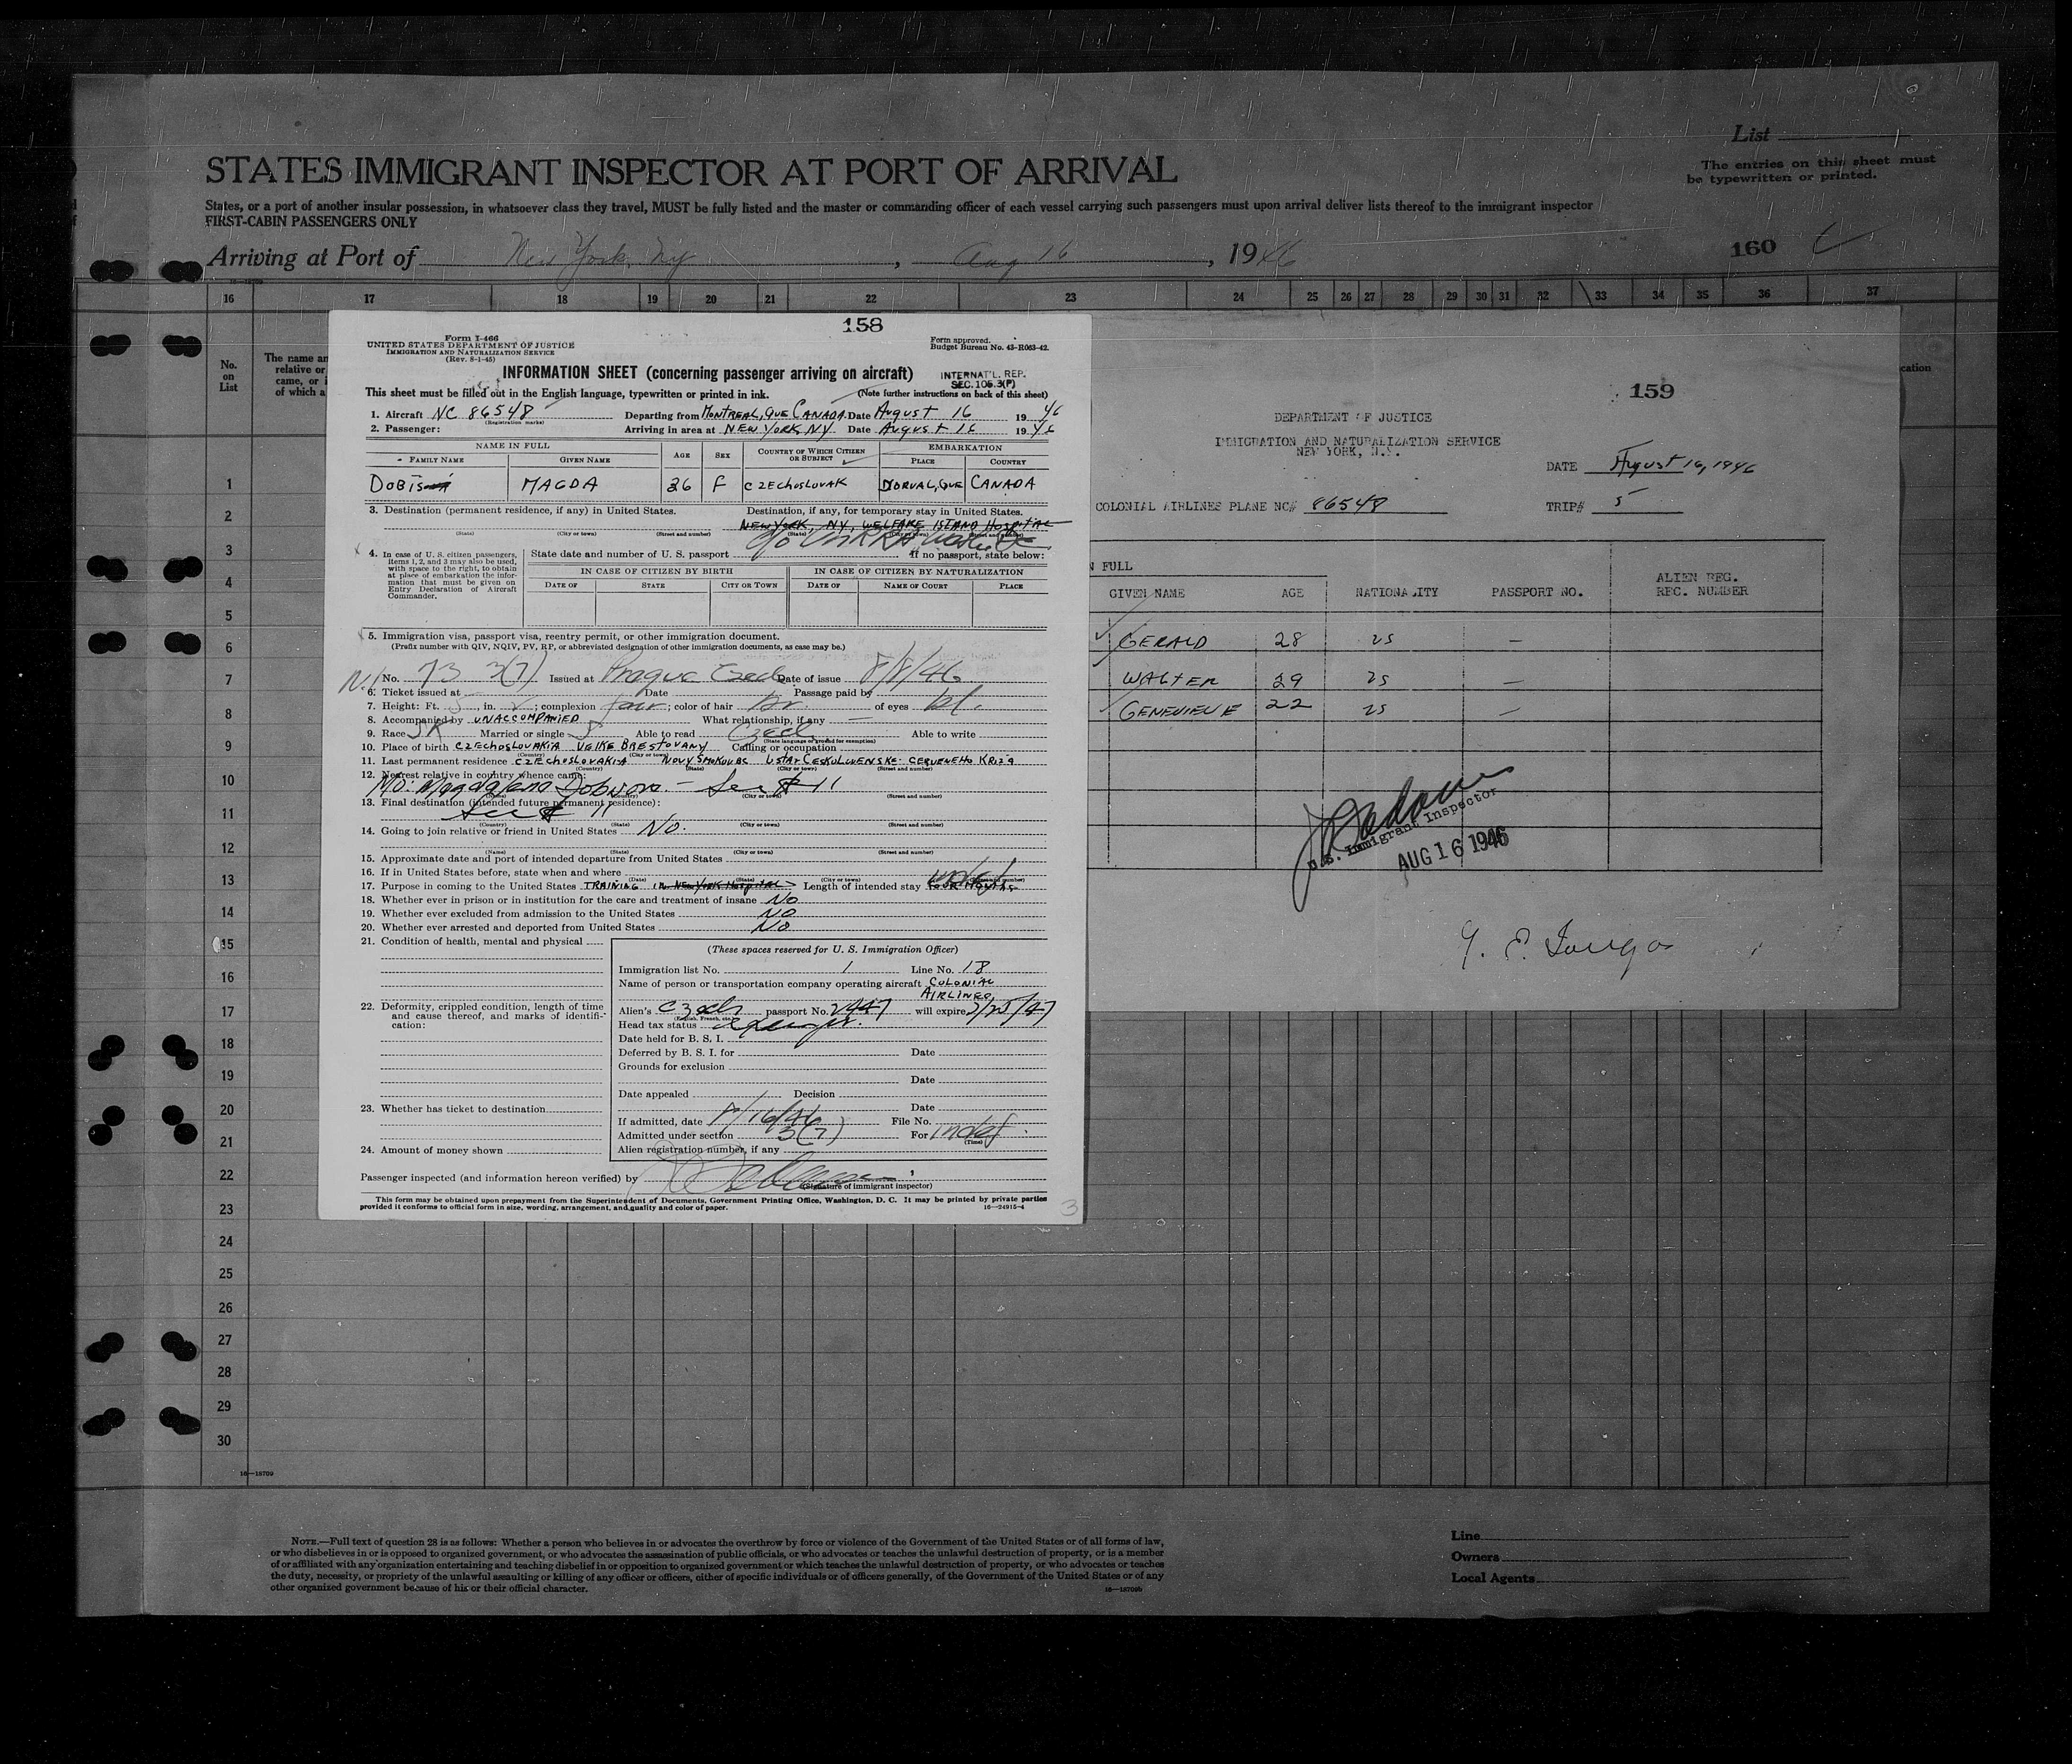 List
STATES IMMIGRANT INSPECTOR AT PORT OF ARRIVAL
The entries on this sheet must
be typewritten or printed.
States, or a port of another insular possession, in whatsoever class they travel, MUST be fully listed and the master or commanding officer of each vessel carrying such passengers must upon arrival deliver lists thereof to the immigrant inspector
FIRST-CABIN PASSENGERS ONLY
Arriving at Port of New York, Ny , Aug 16 , 1946
160
16 17 18 19 20 21 22 23 24 25 26 27 28 29 30 31 32 33 34 35 36 37
No.
on
List
The name an
relative or
came, or i
of which a
cation
158
Form I-466
UNITED STATES DEPARTMENT OF JUSTICE
IMMIGRATION AND NATURALIZATION SERVICE
(Rev. 8-1-45)
Form approved.
Budget Bureau No. 43-R063-42.
INFORMATION SHEET (concerning passenger arriving on aircraft)
INTERNAT'L. REP.
SEC. 105.3(P)
This sheet must be filled out in the English language, typewritten or printed in ink. (Note further instructions on back of this sheet)
1. Aircraft NC 86548 Departing from MONTREAL, QUE CANADA Date August 16 1946
(Registration marks)
2. Passenger: Arriving in area at NEW YORK NY Date August 16 1946
NAME IN FULL AGE SEX COUNTRY OF WHICH CITIZEN OR SUBJECT EMBARKATION
FAMILY NAME GIVEN NAME PLACE COUNTRY
DOBIS MAGDA 26 F CZECHOSLOVAK DORVAL, QUE CANADA
3. Destination (permanent residence, if any) in United States. Destination, if any, for temporary stay in United States.
NEW YORK, NY, WELFARE ISLAND HOSPITAL
(State) (City or town) (Street and number) (State) (City or town) (Street and number)
c/o UNRRA Wash DC
4. In case of U. S. citizen passengers, items 1, 2, and 3 may also be used, with space to the right, to obtain at place of embarkation the information that must be given on Entry Declaration of Aircraft Commander.
State date and number of U. S. passport If no passport, state below:
IN CASE OF CITIZEN BY BIRTH IN CASE OF CITIZEN BY NATURALIZATION
DATE OF STATE CITY OR TOWN DATE OF NAME OF COURT PLACE
5. Immigration visa, passport visa, reentry permit, or other immigration document.
(Prefix number with QIV, NQIV, PV, RP, or abbreviated designation of other immigration documents, as case may be.)
No. 73 3(7) Issued at Prague Czech Date of issue 8/8/46
6. Ticket issued at Date Passage paid by
7. Height: Ft. 5, in. ; complexion fair; color of hair br. of eyes bl.
8. Accompanied by UNACCOMPANIED What relationship, if any —
9. Race SK Married or single S Able to read Czech Able to write
(State language or ground for exemption)
10. Place of birth CZECHOSLOVAKIA VELKE BRESTOVANY Calling or occupation
(Country) (City or town)
11. Last permanent residence CZECHOSLOVAKIA NOVY SMOKOVEC USTAV CESKOLOVENSKE CERVENEHO KRIZA
(Country) (State) (City or town) (Street and number)
12. Nearest relative in country whence came:
Mo: Magdalena - See # 11
(Country) (City or town) (Street and number)
13. Final destination (intended future permanent residence):
See # 11
(Country) (State) (City or town) (Street and number)
14. Going to join relative or friend in United States No.
(Name) (State) (City or town) (Street and number)
15. Approximate date and port of intended departure from United States
16. If in United States before, state when and where
(Date) (State) (City or town) (Street and number)
17. Purpose in coming to the United States TRAINING IN NEW YORK HOSPITAL Length of intended stay FOUR MONTHS
18. Whether ever in prison or in institution for the care and treatment of insane NO
19. Whether ever excluded from admission to the United States NO
20. Whether ever arrested and deported from United States NO
21. Condition of health, mental and physical
(These spaces reserved for U. S. Immigration Officer)
Immigration list No. 1 Line No. 18
Name of person or transportation company operating aircraft COLONIAL
AIRLINES
22. Deformity, crippled condition, length of time and cause thereof, and marks of identification:
Alien's Czech passport No. 2447 will expire 3/25/47
(English, French, etc.)
Head tax status
Date held for B. S. I.
Deferred by B. S. I. for Date
Grounds for exclusion
Date
Date appealed Decision
23. Whether has ticket to destination
Date
If admitted, date 8/16/46 File No.
Admitted under section 3(7) For indef.
(Time)
24. Amount of money shown
Alien registration number, if any
Passenger inspected (and information hereon verified) by
(Signature of immigrant inspector)
This form may be obtained upon prepayment from the Superintendent of Documents, Government Printing Office, Washington, D. C. It may be printed by private parties
provided it conforms to official form in size, wording, arrangement, and quality and color of paper.
16—24915-4
3
159
DEPARTMENT OF JUSTICE
IMMIGRATION AND NATURALIZATION SERVICE
NEW YORK, N.Y.
DATE August 16, 1946
COLONIAL AIRLINES PLANE NC# 86548 TRIP# 5
N FULL
GIVEN NAME AGE NATIONALITY PASSPORT NO. ALIEN REG. REC. NUMBER
GERALD 28 US —
WALTER 29 US —
GENEVIEVE 22 US —
U.S. Immigrant Inspector
AUG 16 1946
1
2
3
4
5
6
7
8
9
10
11
12
13
14
15
16
17
18
19
20
21
22
23
24
25
26
27
28
29
30
16—18709
NOTE.—Full text of question 28 is as follows: Whether a person who believes in or advocates the overthrow by force or violence of the Government of the United States or of all forms of law,
or who disbelieves in or is opposed to organized government, or who advocates the assassination of public officials, or who advocates or teaches the unlawful destruction of property, or is a member
of or affiliated with any organization entertaining and teaching disbelief in or opposition to organized government or which teaches the unlawful destruction of property, or who advocates or teaches
the duty, necessity, or propriety of the unlawful assaulting or killing of any officer or officers, either of specific individuals or of officers generally, of the Government of the United States or of any
other organized government because of his or their official character.
16—18709b
Line
Owners
Local Agents